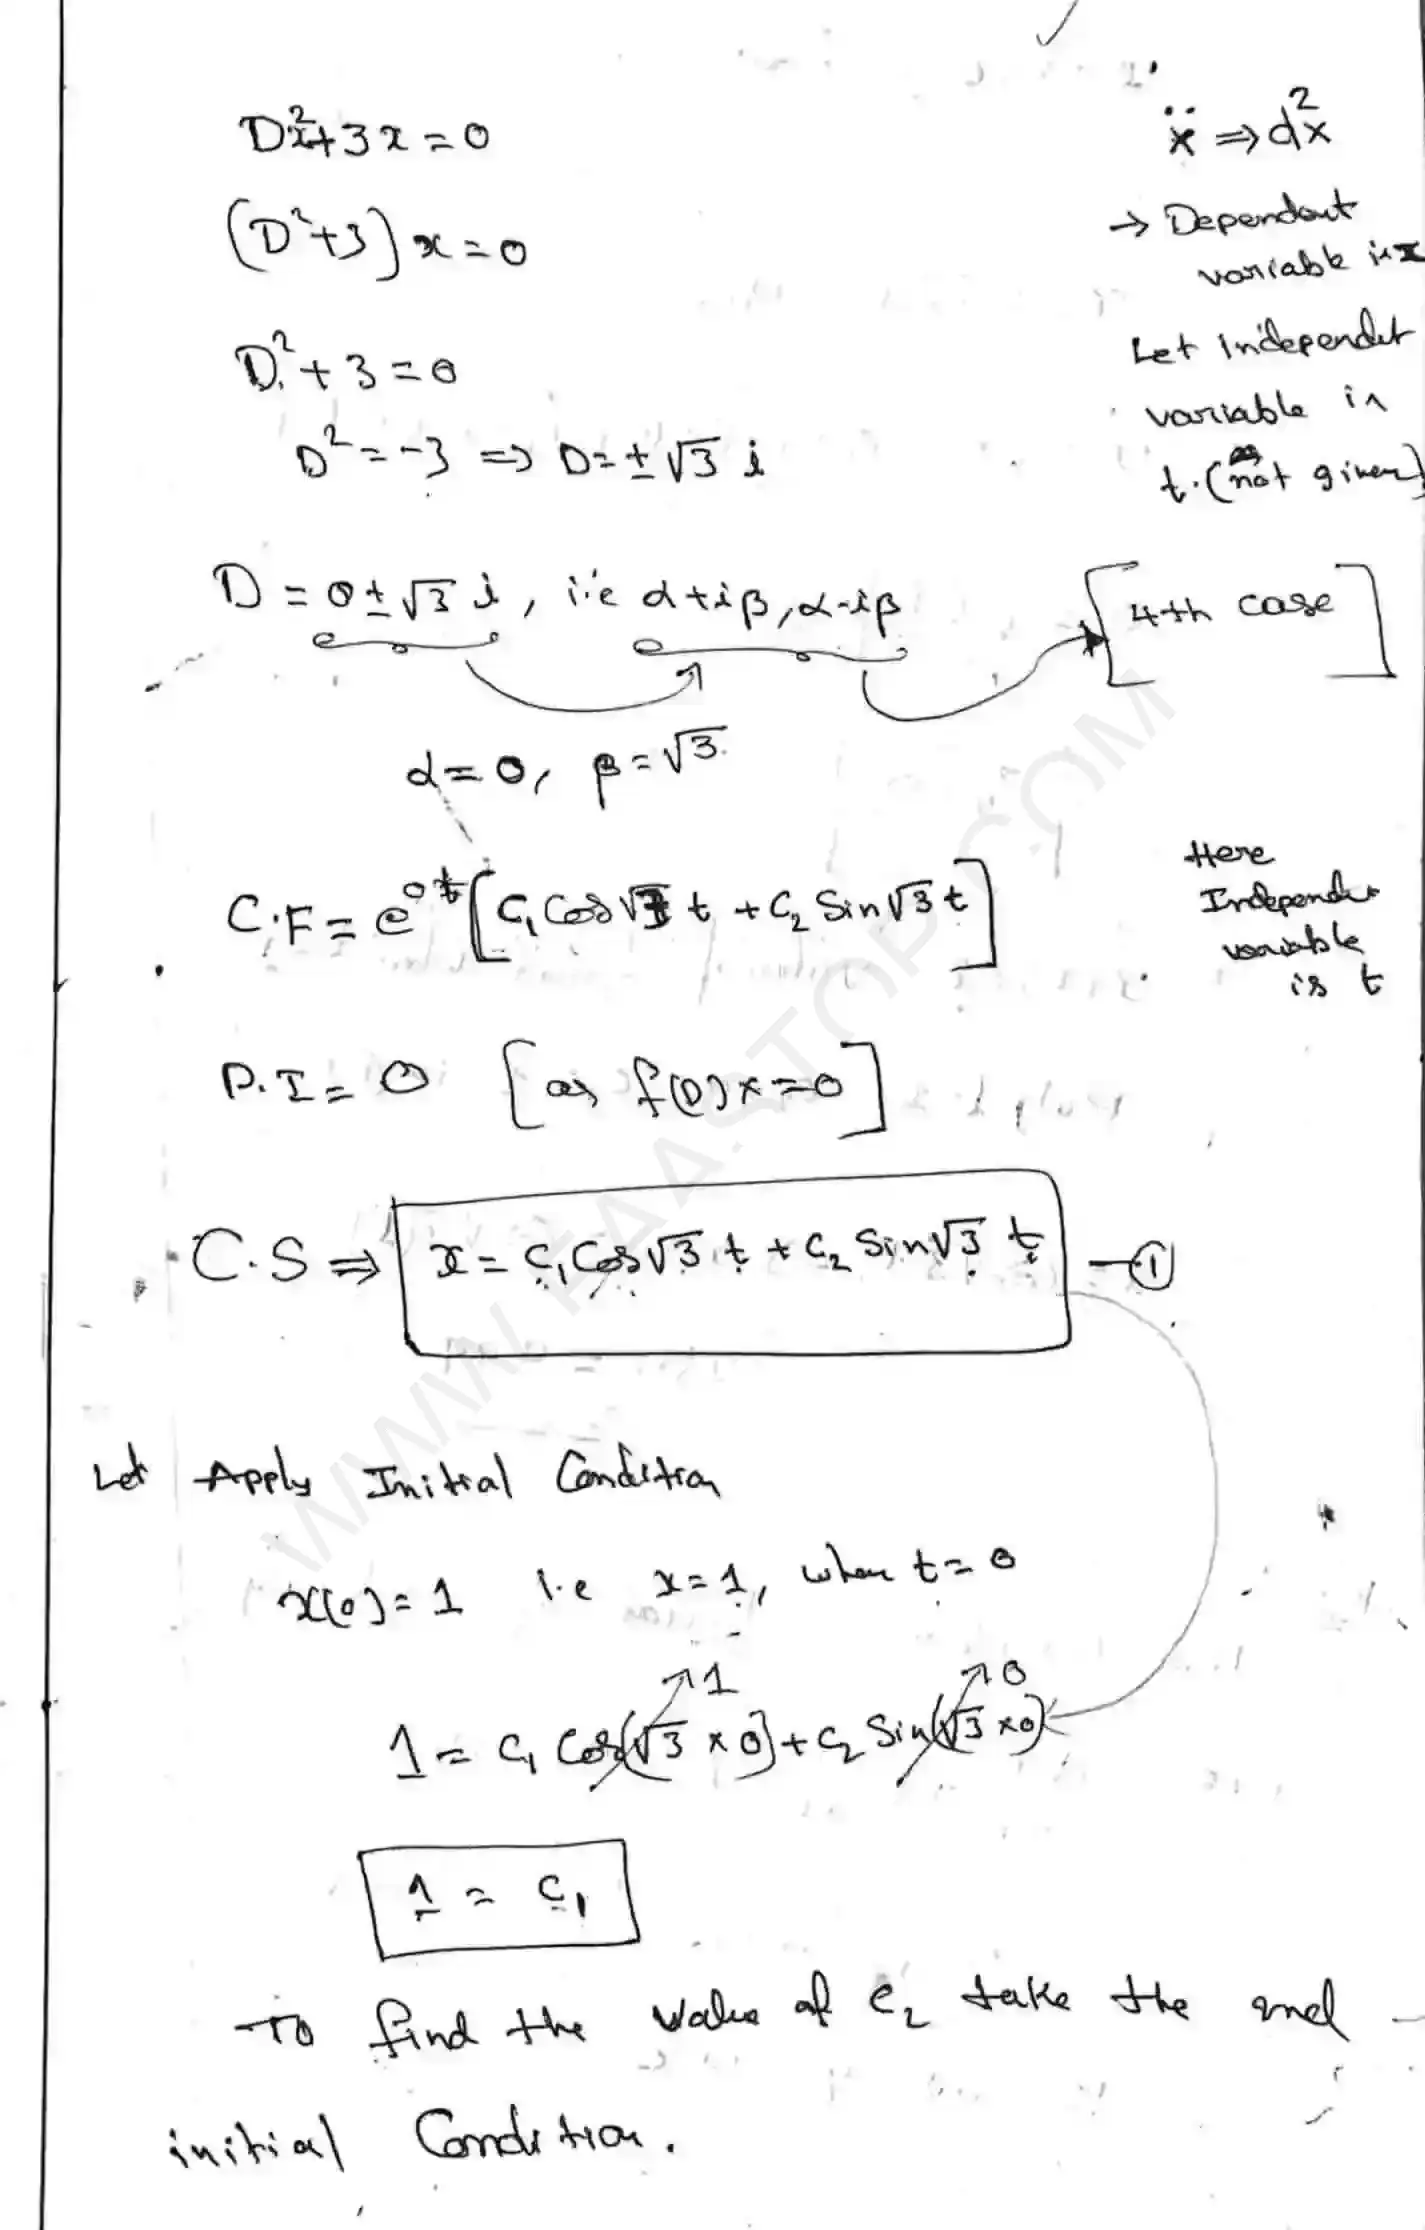 D²x+3x=0
ẍ ⇒ d²x
(D²+3)x=0
→ Dependent
variable is x
D²+3=0
Let Independet
variable is
D²=-3 ⇒ D=±√3 i
t. (not given)
D = 0±√3 i, i.e α+iβ, α-iβ
[4th case]
α=0, β=√3
Here
C.F = e^0t [C₁ Cos √3 t + C₂ Sin √3 t]
Independet
variable
is t
P.I = 0 [as f(D)x=0]
C.S ⇒ x = C₁ Cos √3 t + C₂ Sin √3 t —①
Let Apply Initial Condition
x(0)=1 i.e x=1, when t=0
1 0
1 = C₁ Cos(√3 × 0) + C₂ Sin(√3 × 0)
1 = C₁
To find the value of C₂ take the 2nd
initial Condition.
WWW.FAASTOP.COM